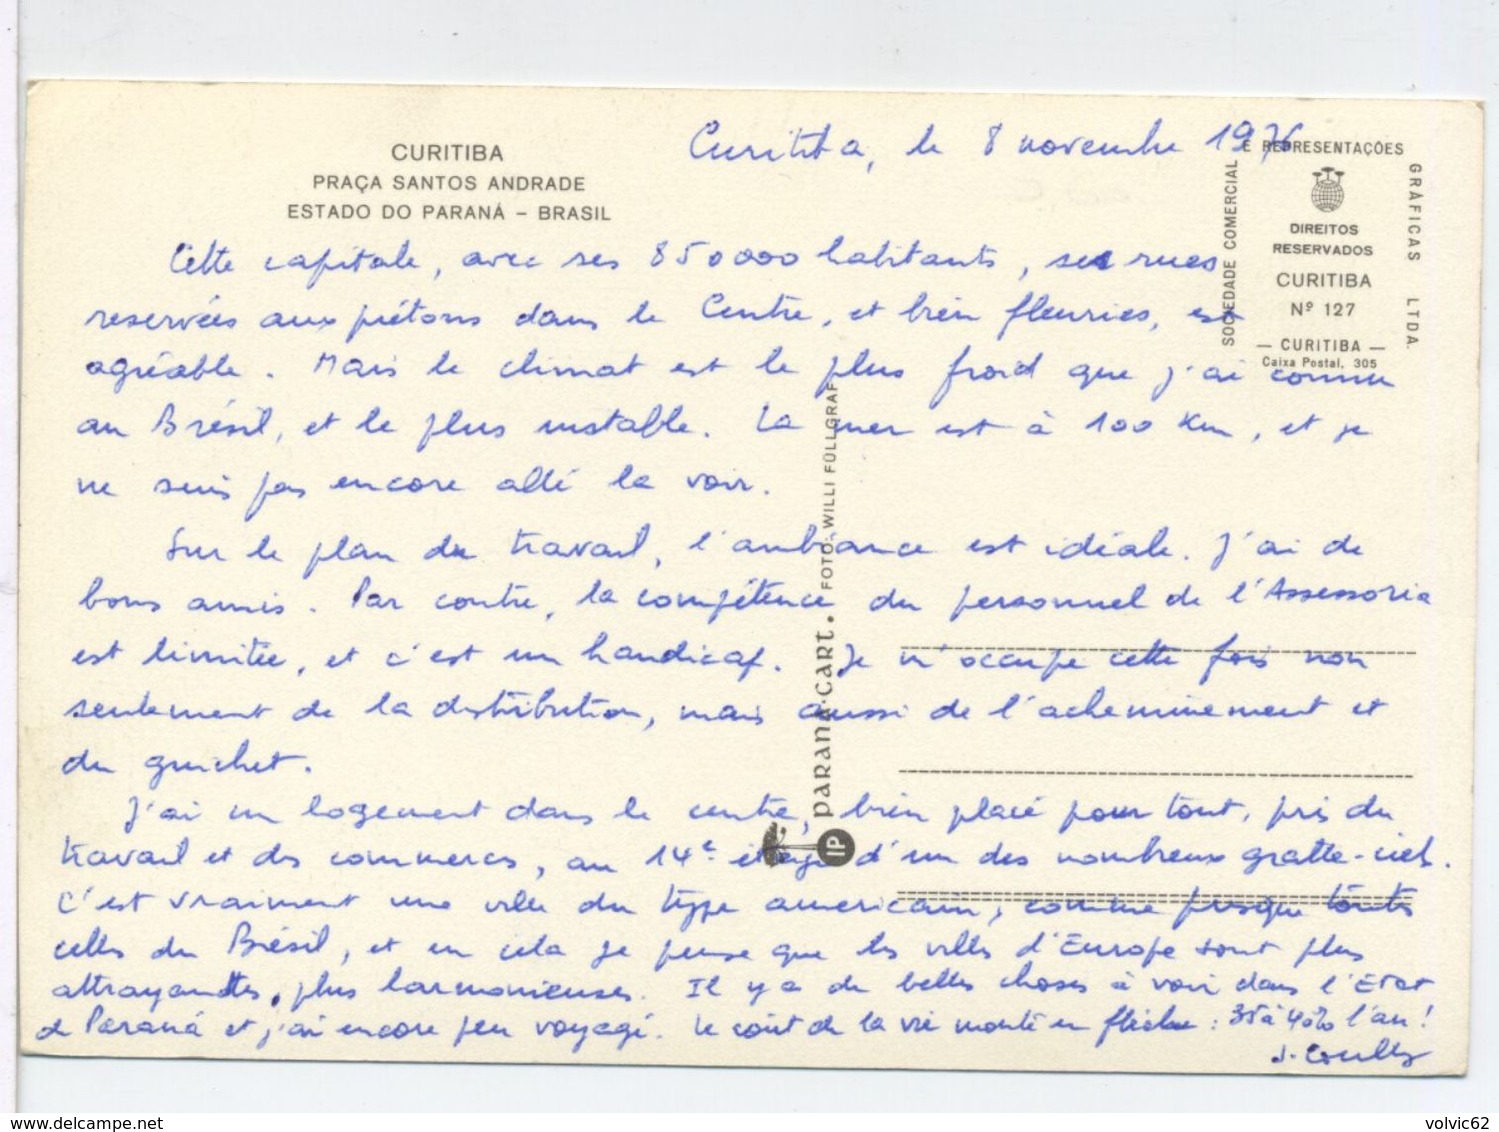 CURITIBA
PRAÇA SANTOS ANDRADE
ESTADO DO PARANÁ – BRASIL
Curitiba, le 8 novembre 1976
SOCIEDADE COMERCIAL E REPRESENTAÇÕES GRÁFICAS LTDA.
DIREITOS
RESERVADOS
CURITIBA
Nº 127
— CURITIBA —
Caixa Postal, 305
Cette capitale, avec ses 850000 habitants, ses rues
reservées aux piétons dans le Centre, et bien fleuries, est
agréable. Mais le climat est le plus froid que j'ai connu
au Brésil, et le plus instable. La mer est à 100 Km, et je
ne suis pas encore allé la voir.
Sur le plan du travail, l'ambiance est idéale. J'ai de
bons amis. Par contre, la compétence du personnel de l'Assessoria
est limitée, et c'est un handicap. Je m'occupe cette fois non
seulement de la distribution, mais aussi de l'acheminement et
du guichet.
J'ai un logement dans le centre, bien placé pour tout, près du
travail et des commerces, au 14e étage d'un des nombreux gratte-ciels.
C'est vraiment une ville du type americain, comme presque toutes
celles du Brésil, et en cela je pense que les villes d'Europe sont plus
attrayantes, plus harmonieuses. Il y a de belles choses à voir dans l'Etat
de Paraná et j'ai encore peu voyagé. Le coût de la vie monte en flèche : 35 à 40% l'an!
PARANÁ-CART. FOTO: WILLI FÜLLGRAF
IP
delcampe.net
volvic62